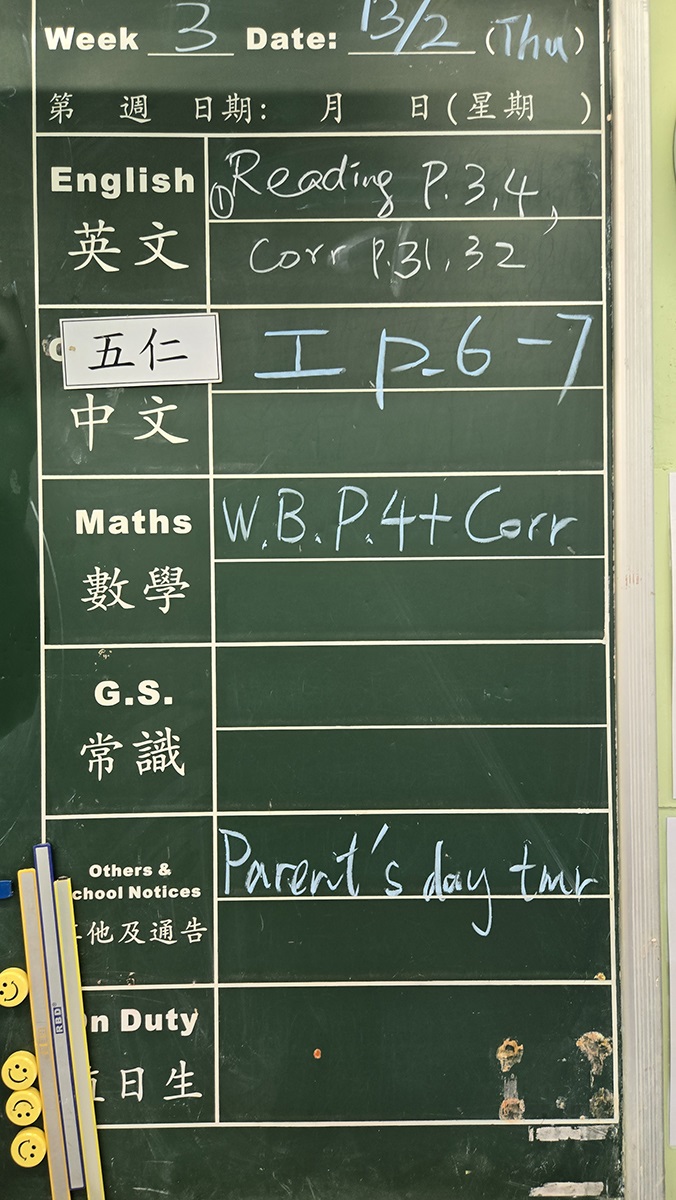 Week 3 Date: 13/2 (Thu)
第 週 日期: 月 日(星期 )
English
英文
① Reading P.3,4,
Corr P.31,32
五仁
中文
工 p.6-7
Maths
數學
W.B.P.4+ Corr
G.S.
常識
Others &
chool Notices
他及通告
Parent's day tmr
n Duty
日生
RBD